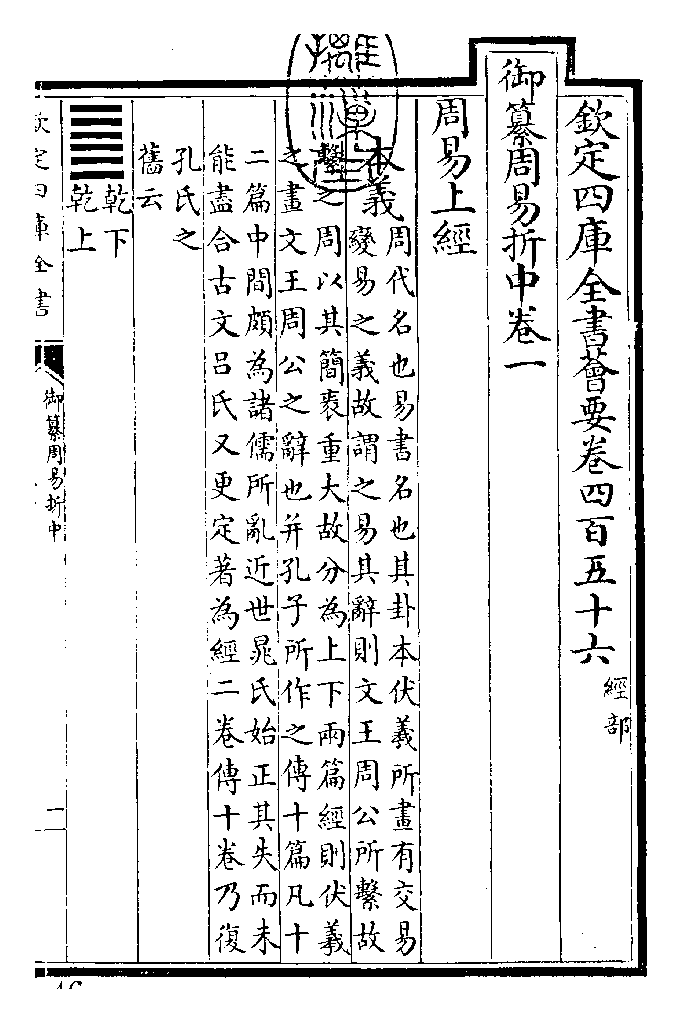 欽定四庫全書薈要卷四百五十六 經部
御纂周易折中卷一
周易上經
本義 周代名也易書名也其卦本伏羲所畫有交易
變易之義故謂之易其辭則文王周公所繫故
繫之周以其簡袠重大故分為上下兩篇經則伏羲
之畫文王周公之辭也并孔子所作之傳十篇凡十
二篇中間頗為諸儒所亂近世晁氏始正其失而未
能盡合古文呂氏又更定著為經二卷傳十卷乃復
孔氏之
舊云
䷀ 乾下
乾上
欽定四庫全書
御纂周易折中
一